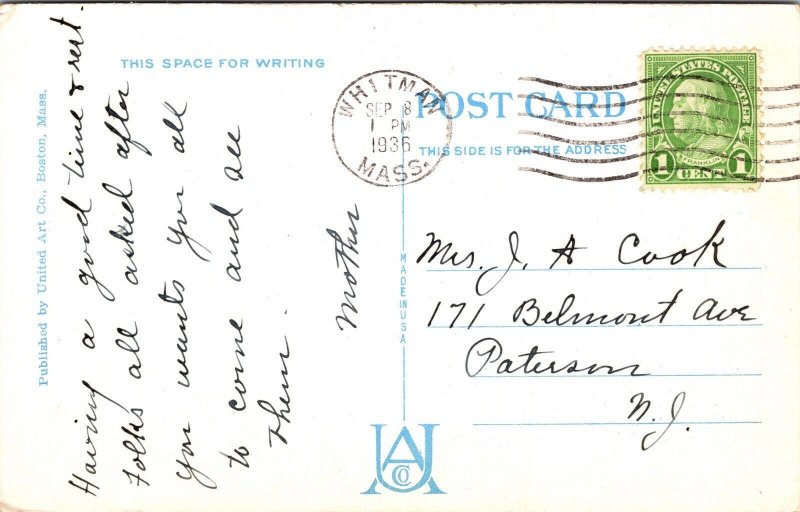 THIS SPACE FOR WRITING
Having a good time & rest.
Folks all asked after
you wants you all
to come and see
them.
Mother
Published by United Art Co., Boston, Mass.
WHITMAN
SEP 8
1 PM
1936
MASS.
POST CARD
THIS SIDE IS FOR THE ADDRESS
UNITED STATES POSTAGE
FRANKLIN
1 CENT 1
MADE IN USA
Mrs. J. A Cook
171 Belmont Ave
Paterson
N.J.
UA
CO